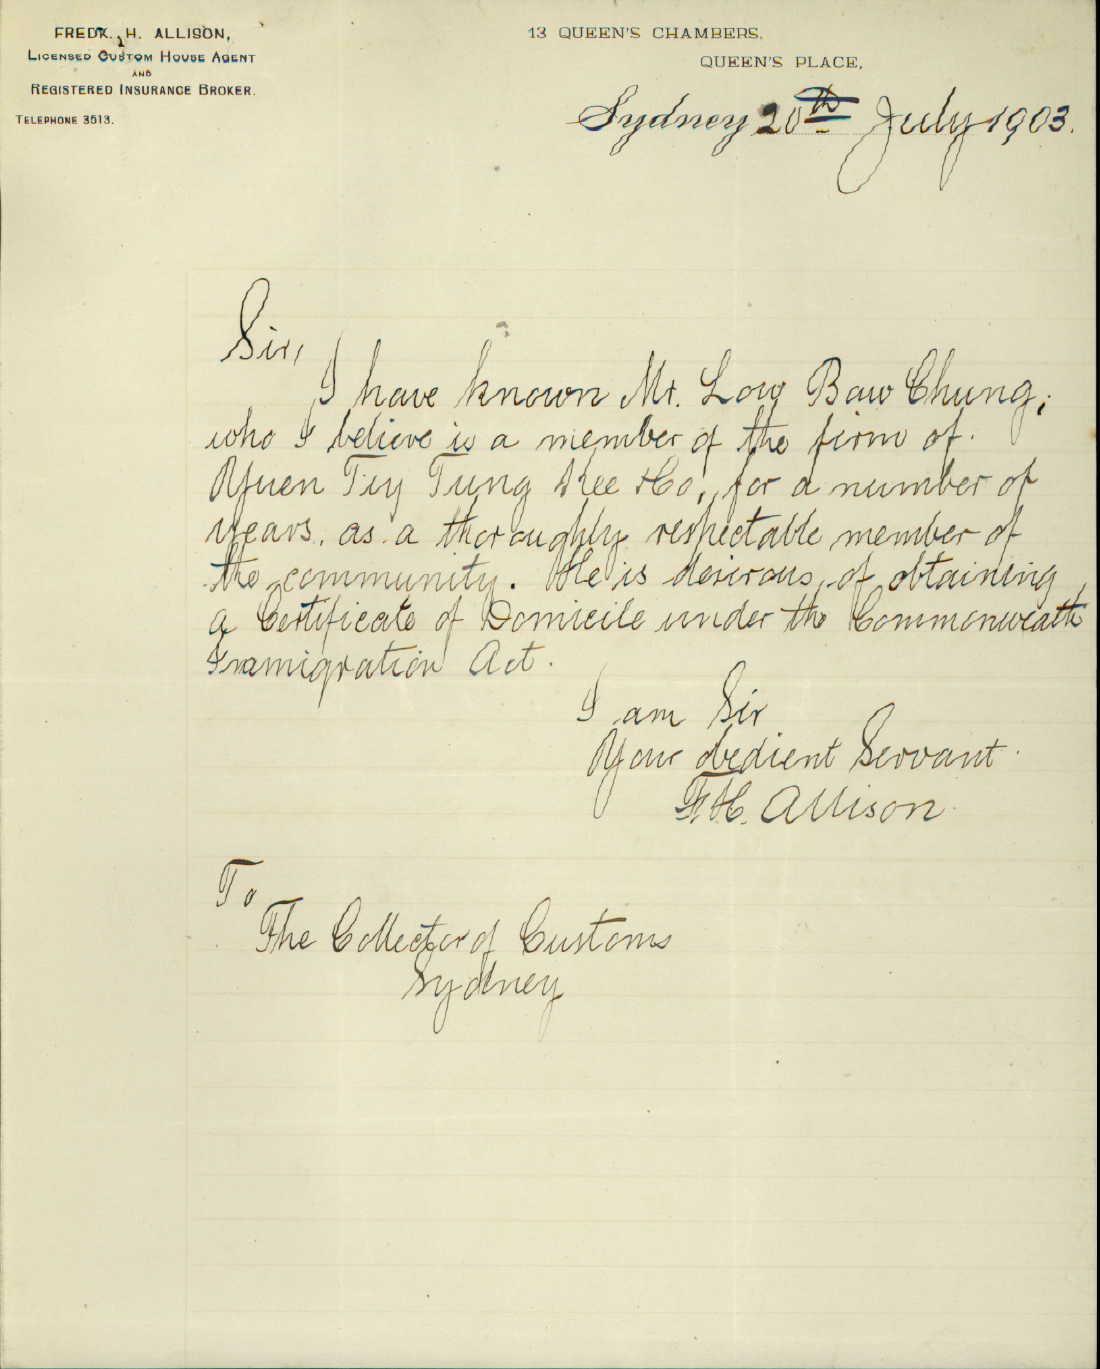 FREDK. H. ALLISON,
LICENSED CUSTOM HOUSE AGENT
AND
REGISTERED INSURANCE BROKER.
TELEPHONE 3513.
13 QUEEN'S CHAMBERS,
QUEEN'S PLACE,
Sydney 20th July 1903.
Sir,
I have known Mr. Low Baw Chung,
who I believe is a member of the firm of
Yuen Tiy Tung Kee & Co, for a number of
years, as a thoroughly respectable member of
the community. He is desirous of obtaining
a Certificate of Domicile under the Commonwealth
Immigration Act.
I am Sir
Your obedient Servant.
F. H. Allison
To
The Collector of Customs
Sydney